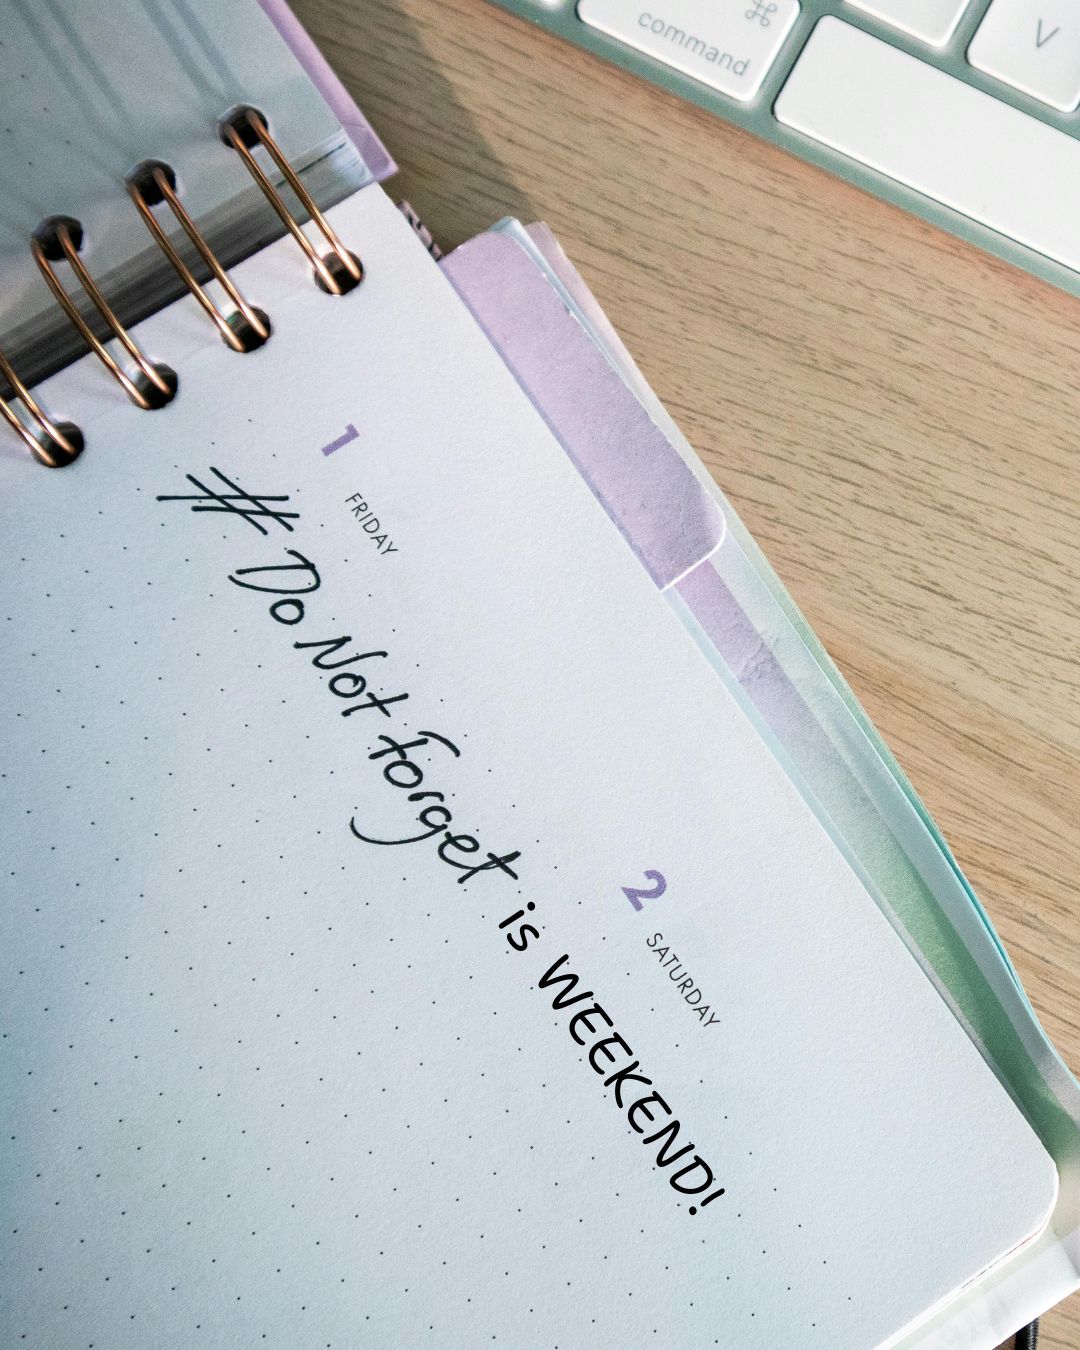 ⌘
command
V
1
FRIDAY
# Do Not Forget is WEEKEND!
2
SATURDAY